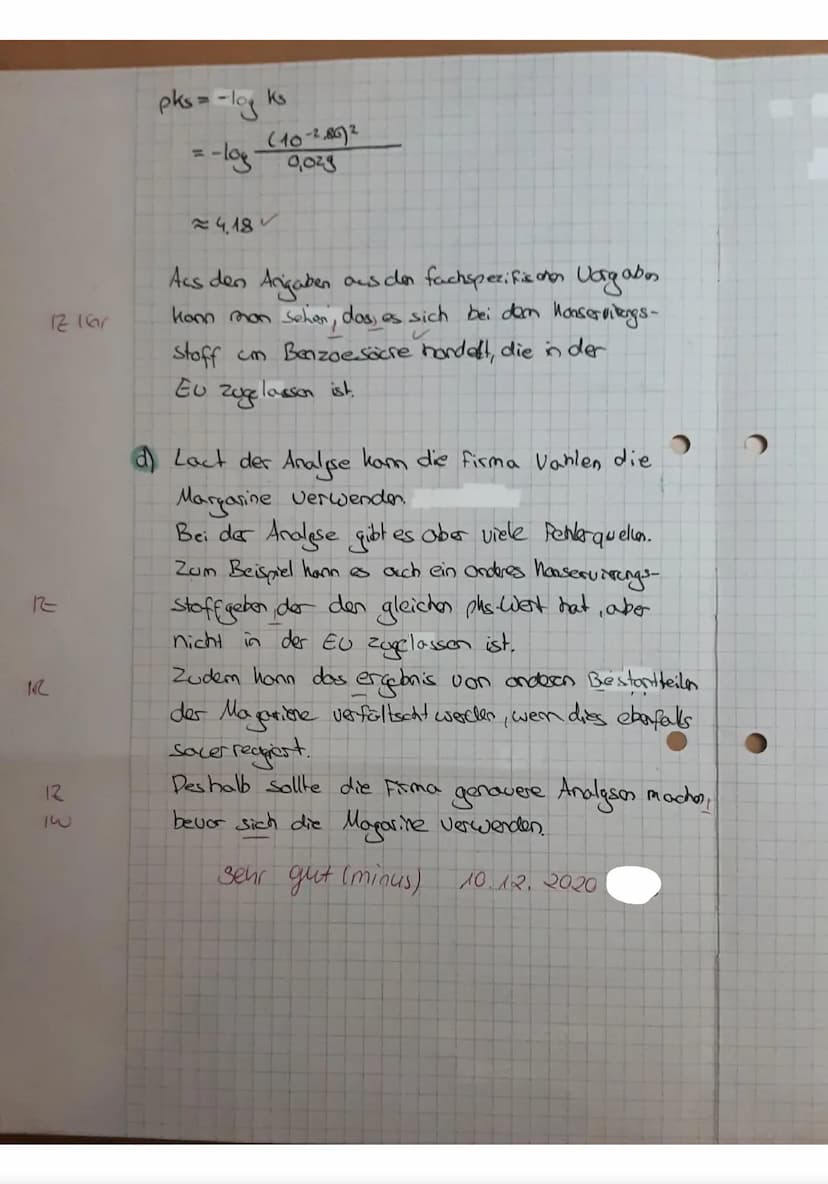 pks = -log ks
= -log (10^-2,86)^2 / 0,029
≈ 4,18 ✓
Aus den Angaben aus den fachspezifischen Vorgaben
kann man sehen, dass es sich bei dem Konservierungs-
stoff um Benzoesäure handelt, die in der
EU zugelassen ist.
d) Laut der Analyse kann die Firma Vahlen die
Margarine verwenden.
Bei der Analyse gibt es aber viele Fehlerquellen.
Zum Beispiel kann es auch ein anderes Konservierungs-
stoff geben, der den gleichen pks-Wert hat, aber
nicht in der EU zugelassen ist.
Zudem kann das ergebnis von anderen Bestandteilen
der Magarine verfälscht werden, wenn dies ebenfalls
sauer reagiert.
Deshalb sollte die Firma genauere Analysen machen,
bevor sich die Magarine verwenden.
sehr gut (minus) 10.12.2020